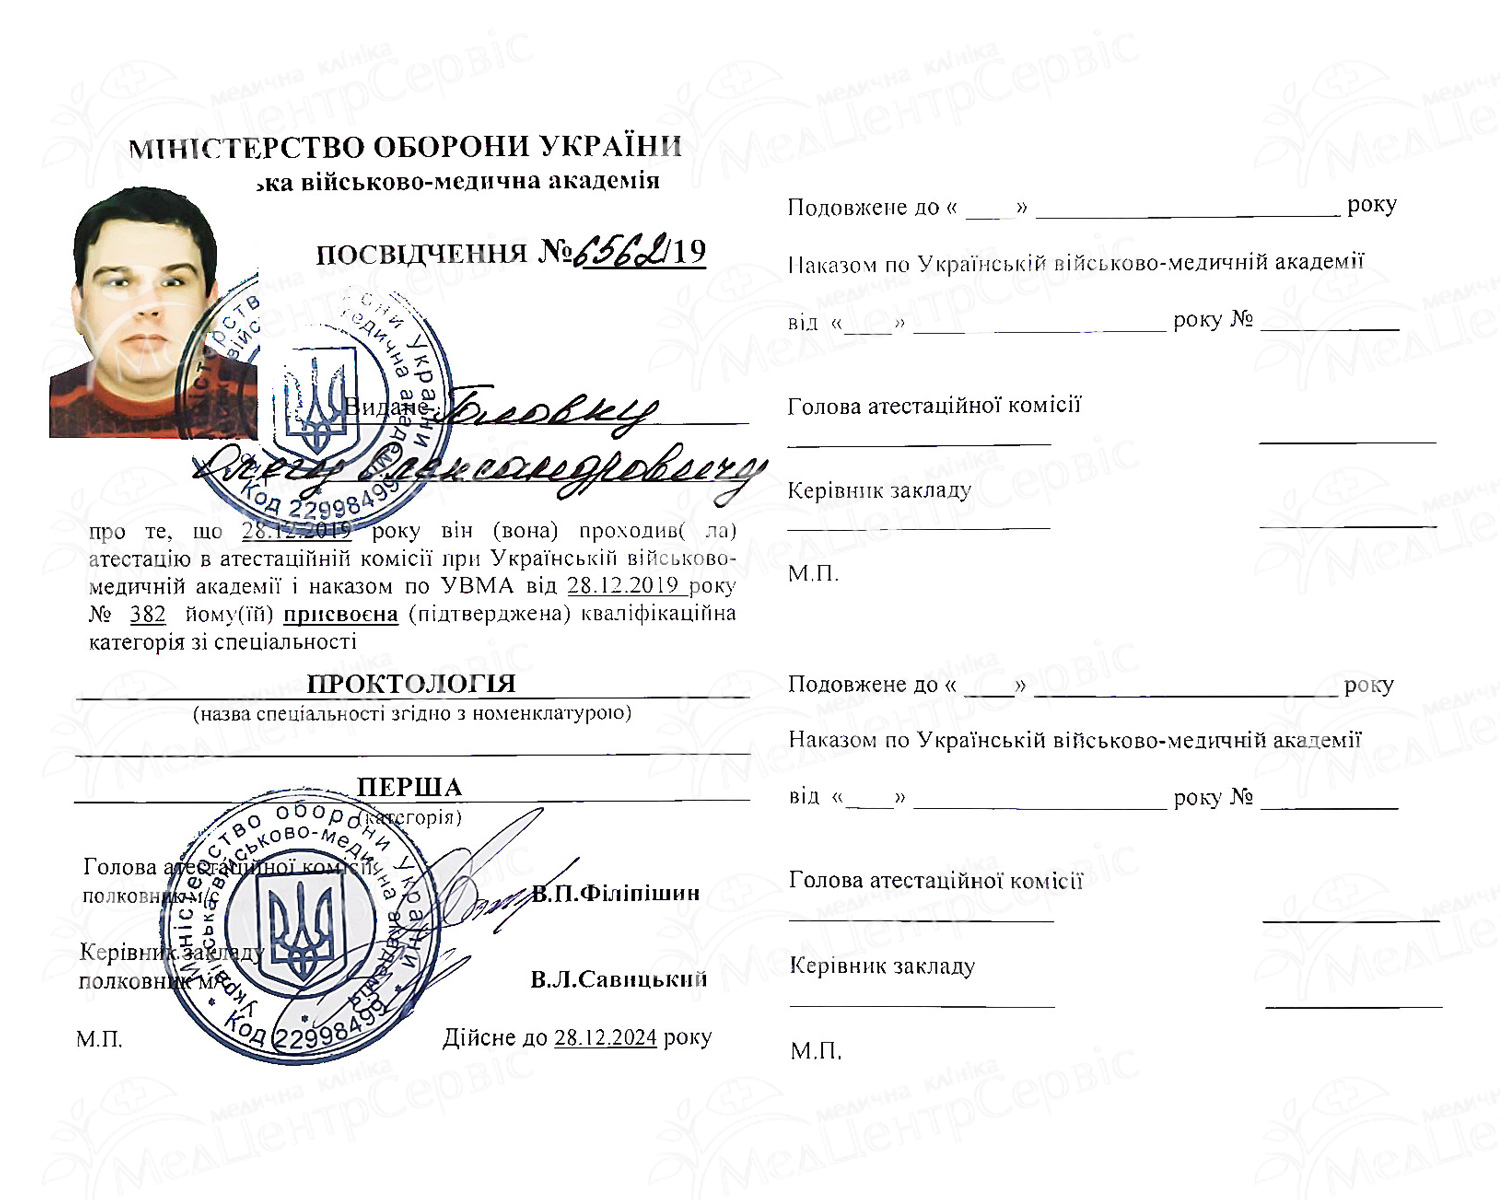 МІНІСТЕРСТВО ОБОРОНИ УКРАЇНИ
ка військово-медична академія
ПОСВІДЧЕННЯ №6562/19
Видане Головку
Олегу Олександровичу
про те, що 28.12.2019 року він (вона) проходив( ла)
атестацію в атестаційній комісії при Українській військово-
медичній академії і наказом по УВМА від 28.12.2019 року
№ 382 йому(їй) присвоєна (підтверджена) кваліфікаційна
категорія зі спеціальності
ПРОКТОЛОГІЯ
(назва спеціальності згідно з номенклатурою)
ПЕРША
(категорія)
Голова атестаційної комісії
полковник м/с В.П.Філіпішин
Керівник закладу
полковник м/с В.Л.Савицький
М.П. Дійсне до 28.12.2024 року
Міністерство оборони України
Українська військово-медична академія
* Код 22998499 *
Подовжене до « ____» ____________ року
Наказом по Українській військово-медичній академії
від «____» ____________ року № ____________
Голова атестаційної комісії
Керівник закладу
М.П.
Подовжене до « ____» ____________ року
Наказом по Українській військово-медичній академії
від «____» ____________ року № ____________
Голова атестаційної комісії
Керівник закладу
М.П.
медична клініка
МедЦентрСервіс